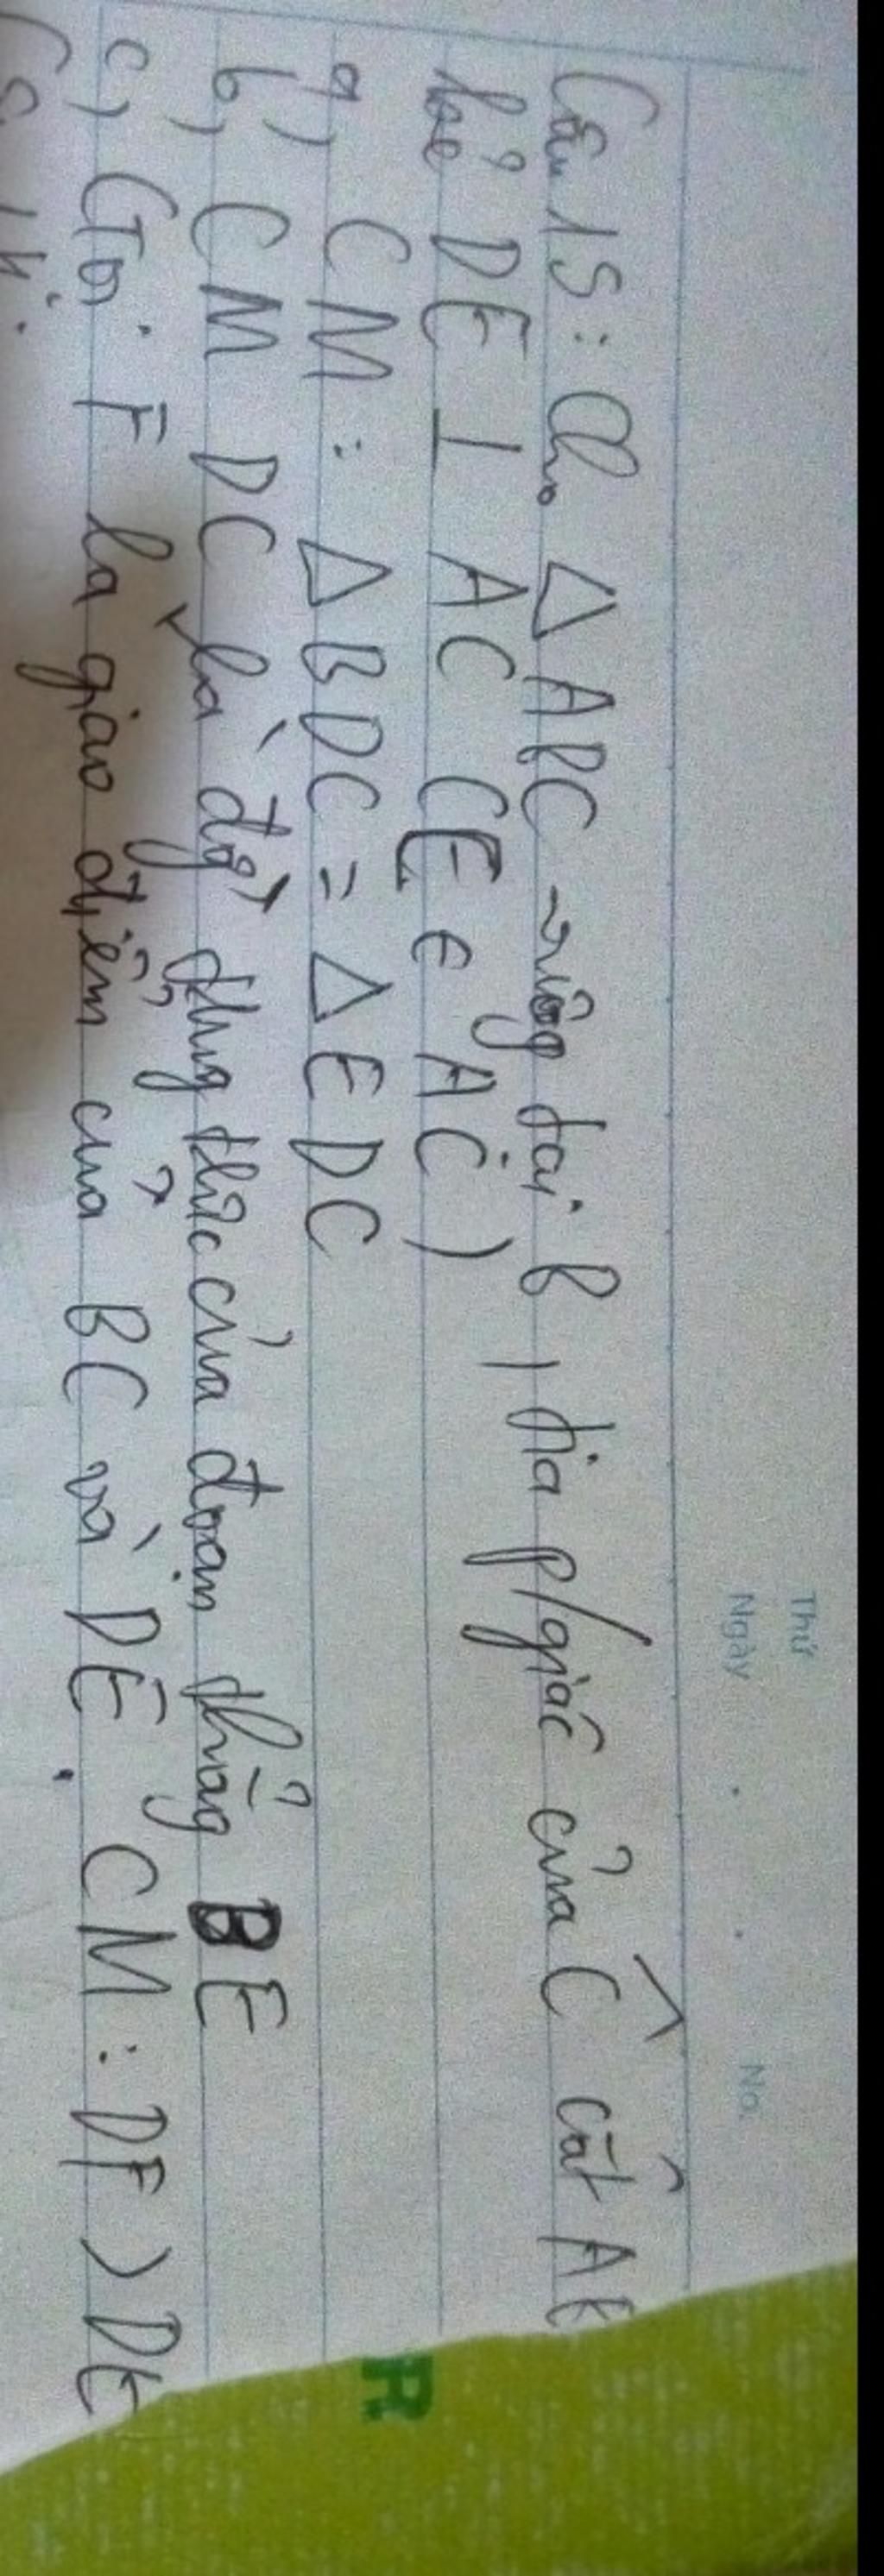 Thứ
Ngày . . No.
Câu 15: Cho △ ABC vuông tại B, tia p/giác của Ĉ cắt AB
kẻ DE ⊥ AC (E ∈ AC)
a, CM: △ BDC = △ EDC
b, CM DC là đg` trung trực của đoạn thẳng BE
c, Gọi F là giao điểm của BC và DE. CM: DF > DE
R